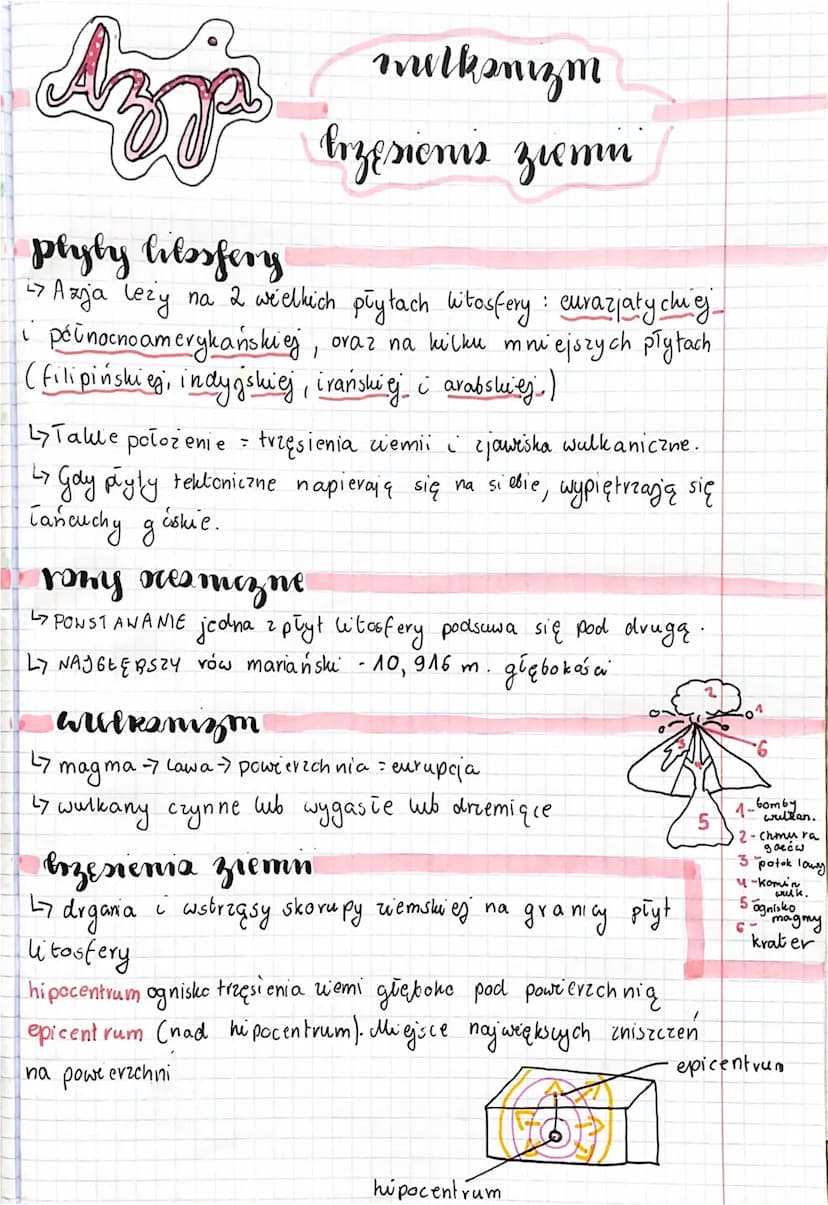 Azja
wulkanizm
trzęsienia ziemi
płyty litosfery
↳ Azja leży na 2 wielkich płytach litosfery : eurazjatyckiej
i północnoamerykańskiej, oraz na kilku mniejszych płytach
(filipińskiej, indyjskiej, irańskiej i arabskiej.)
↳ Takie położenie = trzęsienia ziemii i zjawiska wulkaniczne.
↳ Gdy płyty tektoniczne napierają się na siebie, wypiętrzają się
łańcuchy górskie.
rowy oceaniczne
↳ POWSTAWANIE jedna z płyt litosfery podsuwa się pod drugą.
↳ NAJGŁĘBSZY rów mariański - 10,916 m. głębokości
wulkanizm
↳ magma → lawa → powierzchnia = eurupcja
↳ wulkany czynne lub wygasłe lub drzemiące
2
1
6
3
4
5
1-bomby
wulkan.
2-chmura
gazów
3-potok lawy
4-komin
wulk.
5 ognisko
magmy
6-
krater
trzęsienia ziemi
↳ drgania i wstrząsy skorupy ziemskiej na granicy płyt
litosfery
hipocentrum ognisko trzęsienia ziemi głęboko pod powierzchnią
epicentrum (nad hipocentrum). Miejsce największych zniszczeń
na powierzchni
epicentrum
hipocentrum